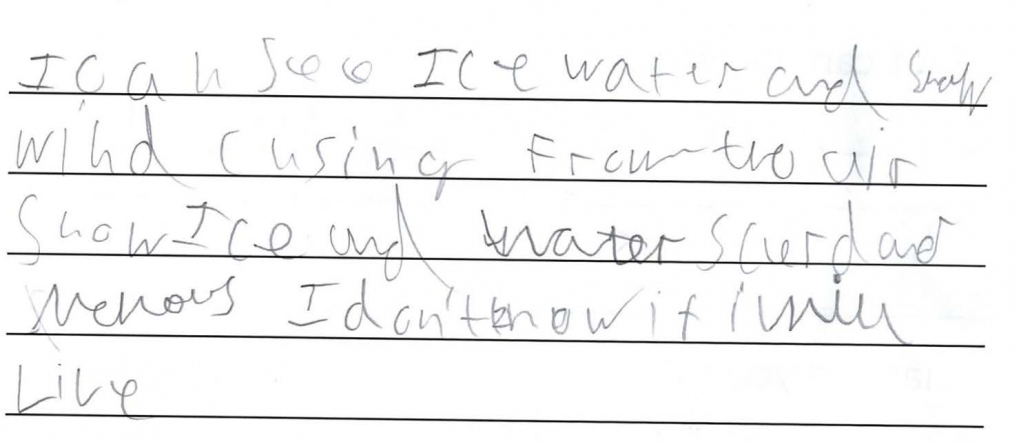 I can see Ice water and snow
wind cusing From the air
Snow Ice and water scuerd and
nervous I don't know if i will
Live